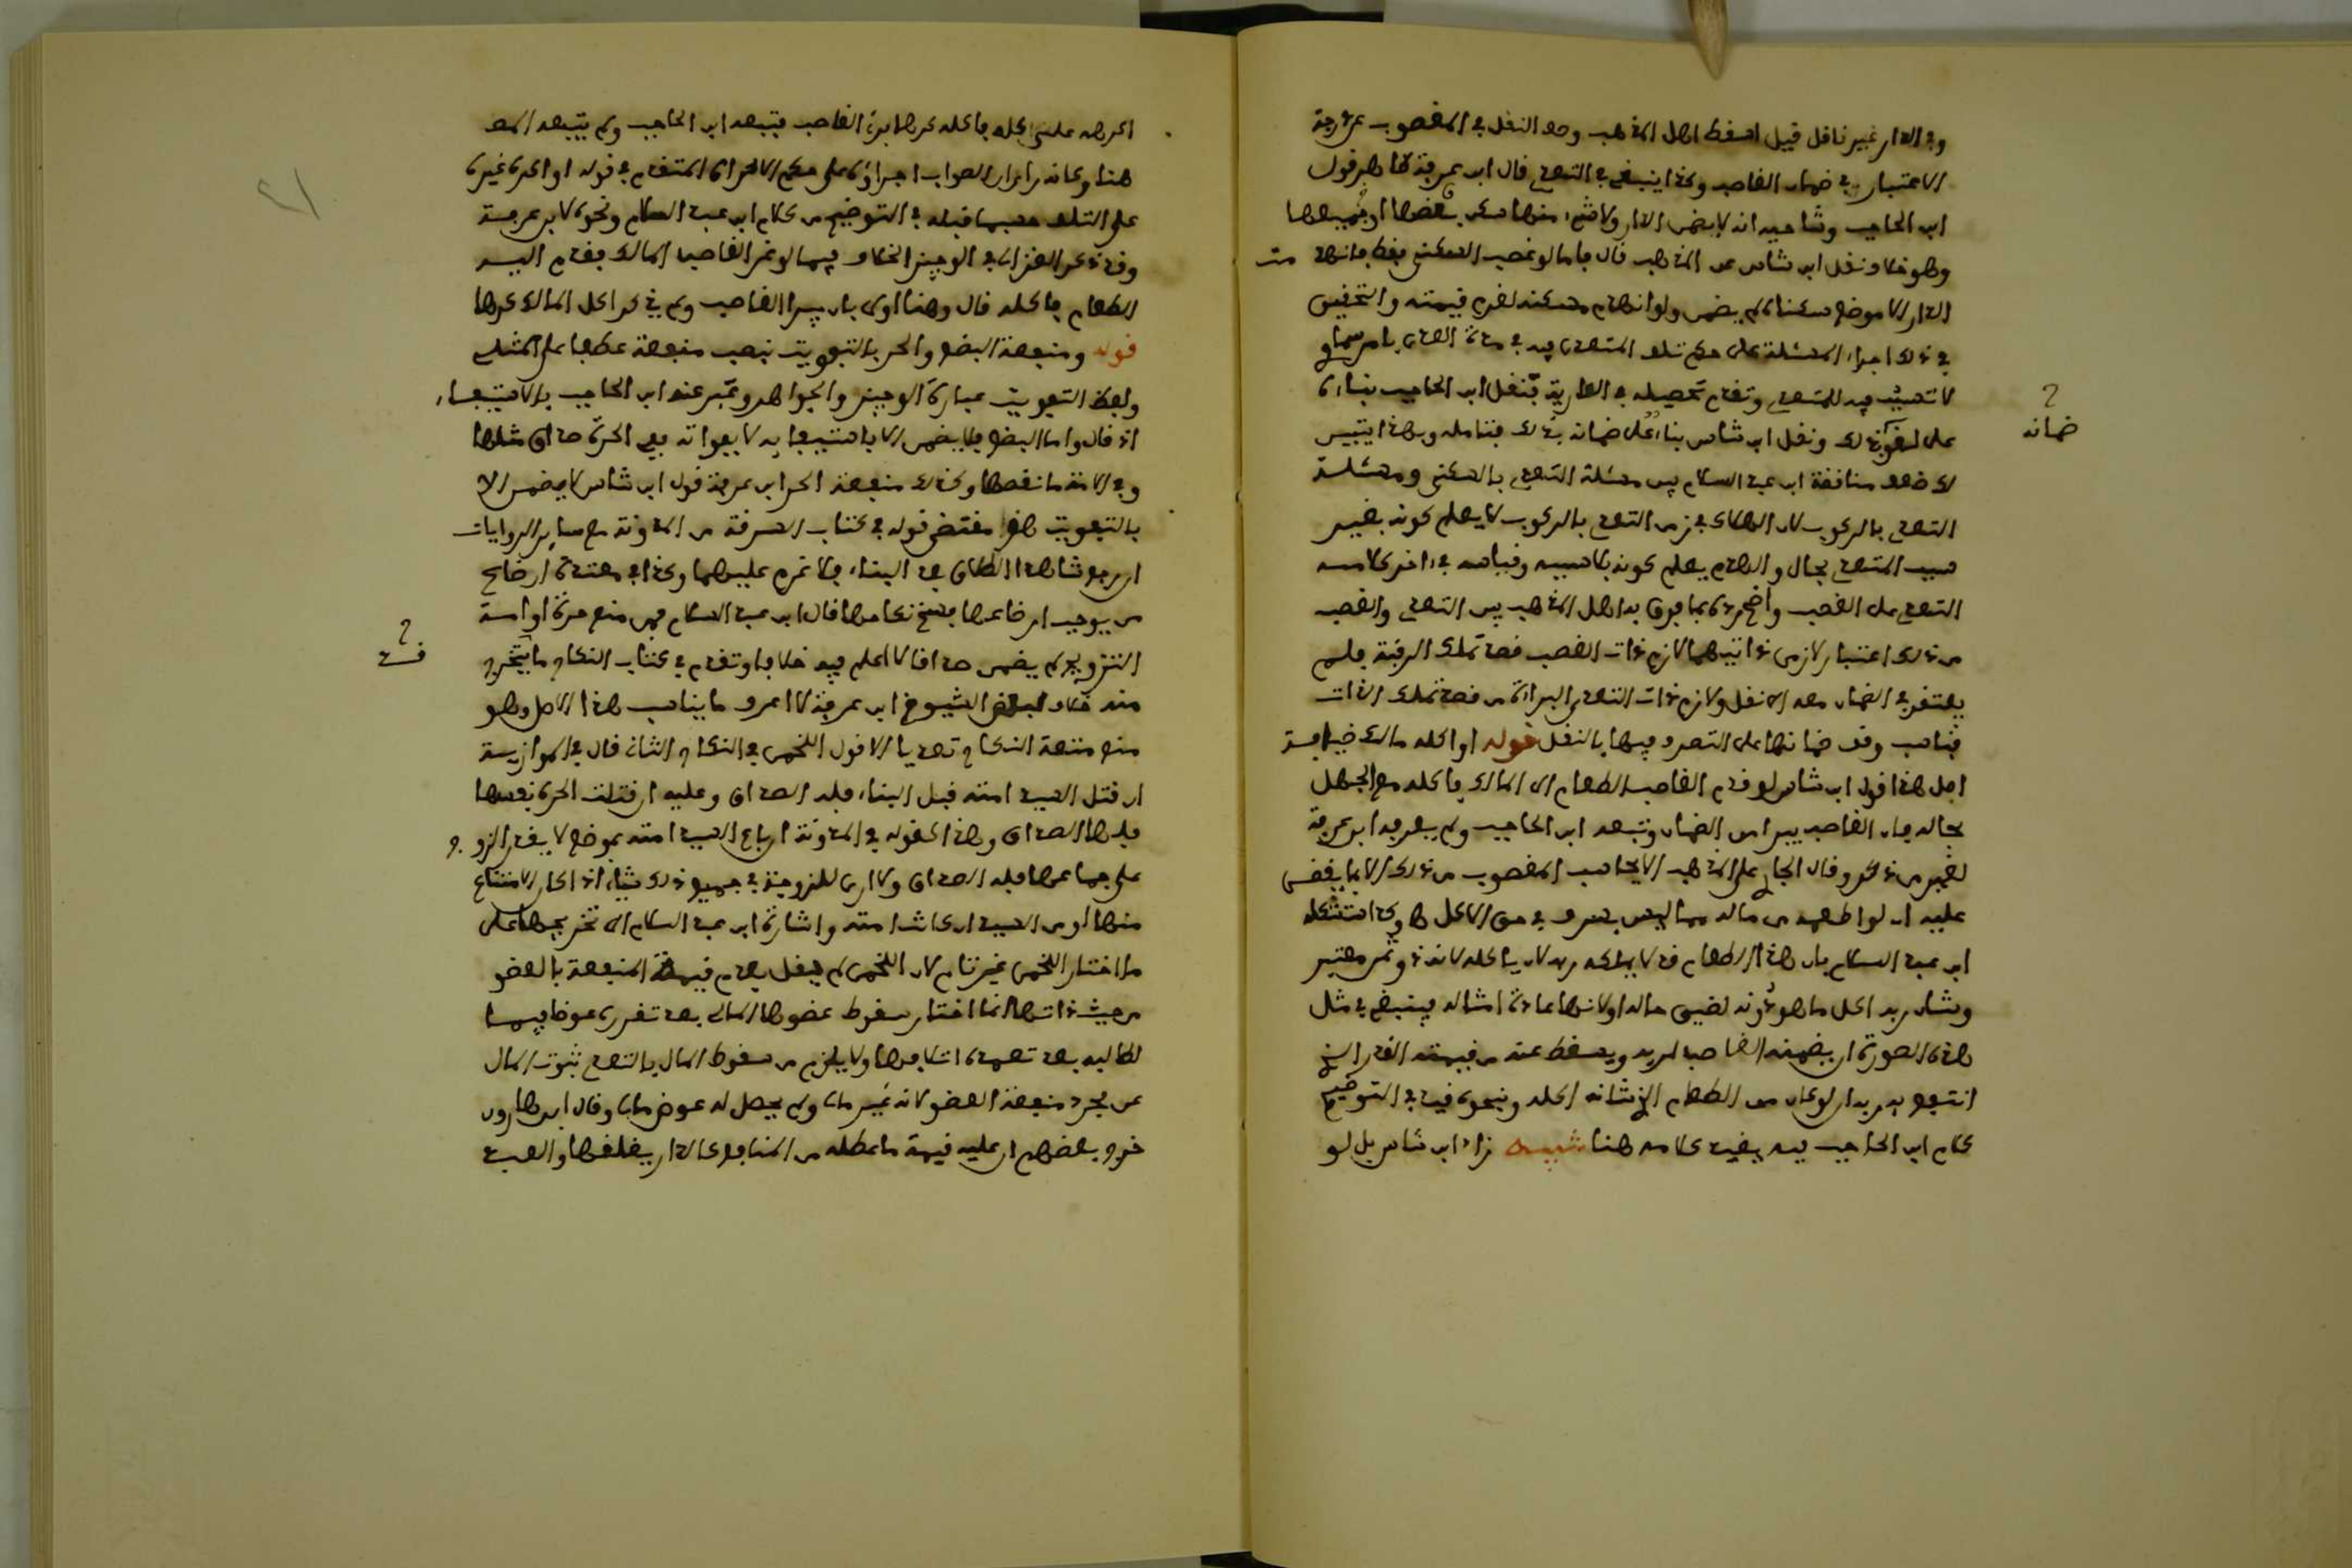 وفي الدار غير ناقل قيل اسقط اهل المذهب وصف النقل في المغصوب عن درجة
الاعتبار في ضمان الغاصب وكذا ينبغي في التعدي قال ابن عرفة ظاهر قول
ابن الحاجب وشارحيه انه لا يضمن الدار ولا شيئا منها سكن بعضها او جميعها
وهو خلاف نقل ابن شاس عن المذهب قال ما لو غصب السكنى فقط فانهدمت
الدار الا موضع سكناه لم يضمن ولو انهدم مسكنه لغرم قيمته والتحقيق
في ذلك اجراء المسئلة على حكم تلف المتعدى فيه في مدة التعدي بامر سماوي
لا تسبب فيه للمتعدي وتقدم تحصيله في العارية فنقل ابن الحاجب بناء
على لغو ذلك ونقل ابن شاس بناء على ضمانه بذلك فتامله وبهذا يتبين
لك ضعف مناقضة ابن عبد السلام بين مسئلة التعدي بالسكنى ومسئلة
التعدي بالركوب لان الهلاك في زمن التعدي بالركوب لا يعلم كونه بغير
سبب المتعدي بحال والهدم يعلم كونه بلا سببه وقياسه في اخر كلامه
التعدي على الغصب واضح رده بما فرق به اهل المذهب بين التعدي والغصب
من ذلك اعتبار لازمي ذاتيهما لازم ذات الغصب قصد تملك الرقبة فلم
يفتقر في الضمان معه الى نقل ولازم ذات التعدي البراءة من قصد تملك الذات
فناسب وقف ضمانها على التصرف فيها بالنقل قوله او اكله مالكه ضيافة
اصل هذا قول ابن شاس لو قدم الغاصب الطعام الى المالك فاكله مع الجهل
بحاله فان الغاصب يبرا من الضمان وتبعه ابن الحاجب ولم يعرفه ابن عرفة
لغير من ذكر وقال الجاري على المذهب الا يحاسب المغصوب من ذلك الا بما يقضى
عليه ان لو اطعمه من ماله مما ليس بسرف في حق الاكل وكذا استشكله
ابن عبد السلام بان هذا الطعام قد لا يملكه من كان ياكله لانه ذو ثمن معتبر
وشان ربه اكل ما هو دونه لضيق حاله او لانها عادة امثاله فينبغي في مثل
هذه الصورة ان يضمنه الغاصب لربه ويسقط عنه من قيمته القدر الذي
انتفع به ربه ان لو كان من الطعام الذي شانه اكله ونحوه قيد في التوضيح
كلام ابن الحاجب فبه يقيد كلامه هنا تنبيه زاد ابن شاس بل لو
ضمانه
اكرهه على اكله فاكله كرها برئ الغاصب فتبعه ابن الحاجب ولم يتبعه المص
هنا وكانه راى ان الصواب اجراؤه على حكم الاكراه المتقدم في قوله او اكره غيره
على التلف حسبما قبله في التوضيح من كلام ابن عبد السلام ونحوه لابن عرفة
وقد ذكر الغزالي في الوجيز الخلاف فيما لو غر الغاصب المالك فقدم اليه
الطعام فاكله قال وهنا اولى بان يبرا الغاصب ولم يذكر اكل المالك كرها
قوله ومنفعة البضع والحر بالتفويت نصب منفعة عطفا على المثلي
ولفظ التفويت عبارة الوجيز والجواهر وعبر عنه ابن الحاجب بالاستيفاء
اذ قال واما البضع فلا يضمن الا باستيفائه لا بفواته ففي الحرة صداق مثلها
وفي الامة ما نقصها وكذلك منفعة الحر ابن عرفة قول ابن شاس لا يضمن الا
بالتفويت هو مقتضى قوله في كتاب السرقة من المدونة مع سائر الروايات
ان رجع شاهدا الطلاق بعد البناء فلا غرم عليهما وكذا في مسئلة ارضاع
من يوجب ارضاعها فسخ نكاحها قال ابن عبد السلام فمن منع حرة او امة
التزويج لم يضمن صداقا لا اعلم فيه خلافا وتقدم في كتاب النكاح ما يتخرج
منه خلاف لبعض الشيوخ ابن عرفة لا اعرف ما يناسب هذا الاصل وهو
منع متعة النكاح تعديا الا قول اللخمي في النكاح الثاني قال في الموازية
ان قتل السيد امته قبل البناء فله الصداق وعليه ان قتلت الحرة نفسها
فلها الصداق وهذا كقوله في المدونة ان باع السيد امته بموضع لا يقدر الزوج
على جماعها فله الصداق ولا ارى للزوجة في جميع ذلك شيئا اذا كان الامتناع
منها او من السيد ان كانت امته واشارة ابن عبد السلام الى تخريجها على
ما اختار اللخمي غير تام لان اللخمي لم يقل بعدم قيمة المنفعة بالعضو
من حيث ذاتها انما اختار سقوط عضوها المالي بعد تقرره عوضا فيها
لطالبه بعد تعمده اتلافها ولا يلزم من سقوط المال بالتعدي ثبوت المال
عن مجرد منفعة العضو لانه غير مال ولم يحصل له عوض مالي وقال ابن هارون
خرج بعضهم ان عليه قيمة ما عطله من المنافع كالدار يغلقها والعبد